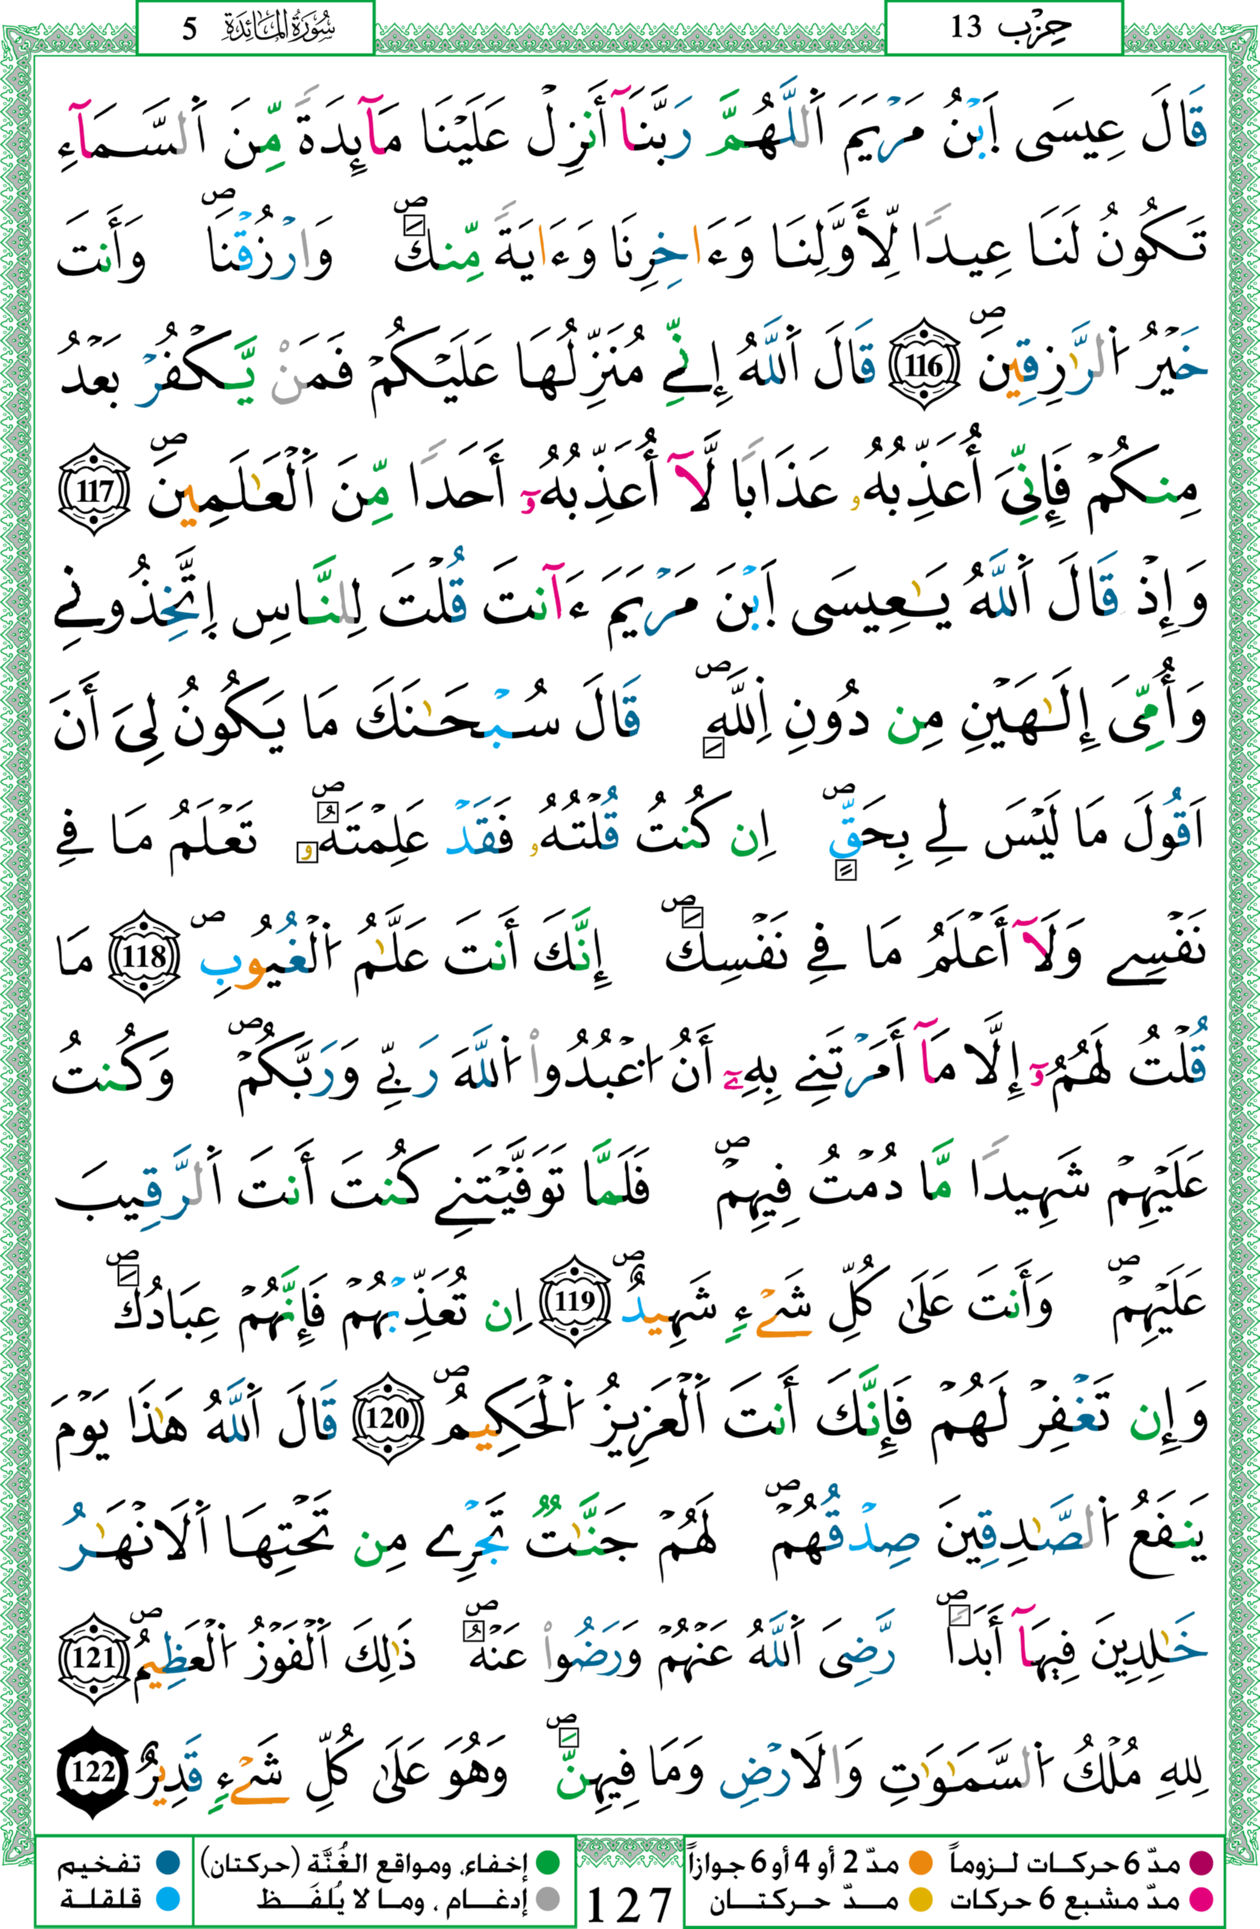 حِزْب 13
سُورَةُ المَائِدَة 5
قَالَ عِيسَى اَ۪بْنُ مَرْيَمَ اَ۬للَّهُمَّ رَبَّنَآ أَنزِلْ عَلَيْنَا مَآئِدَةً مِّنَ اَ۬لسَّمَآءِ
تَكُونُ لَنَا عِيدًا لِّأَوَّلِنَا وَءَاخِرِنَا وَءَايَةً مِّنكَۖ وَارْزُقْنَاۖ وَأَنتَ
خَيْرُ اُ۬لرَّٰزِقِينَۖ 116 قَالَ اَ۬للَّهُ إِنِّے مُنَزِّلُهَا عَلَيْكُمْ فَمَنْ يَّكْفُرْ بَعْدُ
مِنكُمْ فَإِنِّيَ أُعَذِّبُهُۥ عَذَابًا لَّآ أُعَذِّبُهُۥٓ أَحَدًا مِّنَ اَ۬لْعَٰلَمِينَۖ 117
وَإِذْ قَالَ اَ۬للَّهُ يَٰعِيسَى اَ۪بْنَ مَرْيَمَ ءَآنتَ قُلْتَ لِلنَّاسِ اِ۪تَّخِذُونِے
وَأُمِّيَ إِلَٰهَيْنِ مِن دُونِ اِ۬للَّهِۖ قَالَ سُبْحَٰنَكَ مَا يَكُونُ لِيَ أَنَ
اَقُولَ مَا لَيْسَ لِے بِحَقٍّۖ اِن كُنتُ قُلْتُهُۥ فَقَدْ عَلِمْتَهُۥۖ تَعْلَمُ مَا فِے
نَفْسِے وَلَآ أَعْلَمُ مَا فِے نَفْسِكَۖ إِنَّكَ أَنتَ عَلَّٰمُ اُ۬لْغُيُوبِۖ 118 مَا
قُلْتُ لَهُمُۥٓ إِلَّا مَآ أَمَرْتَنِے بِهِۦٓ أَنُ اُ۟عْبُدُوا۟ اُ۬للَّهَ رَبِّے وَرَبَّكُمْۖ وَكُنتُ
عَلَيْهِمْ شَهِيدًا مَّا دُمْتُ فِيهِمْۖ فَلَمَّا تَوَفَّيْتَنِے كُنتَ أَنتَ اَ۬لرَّقِيبَ
عَلَيْهِمْۖ وَأَنتَ عَلَىٰ كُلِّ شَےْءٍ شَهِيدٌۖ 119 اِن تُعَذِّبْهُمْ فَإِنَّهُمْ عِبَادُكَۖ
وَإِن تَغْفِرْ لَهُمْ فَإِنَّكَ أَنتَ اَ۬لْعَزِيزُ اُ۬لْحَكِيمُۖ 120 قَالَ اَ۬للَّهُ هَٰذَا يَوْمَ
يَنفَعُ اُ۬لصَّٰدِقِينَ صِدْقُهُمْۖ لَهُمْ جَنَّٰتٌ تَجْرِے مِن تَحْتِهَا اَ۬لَانْهَٰرُ
خَٰلِدِينَ فِيهَآ أَبَدًاۖ رَّضِيَ اَ۬للَّهُ عَنْهُمْ وَرَضُوا۟ عَنْهُۖ ذَٰلِكَ اَ۬لْفَوْزُ اُ۬لْعَظِيمُۖ 121
لِلهِ مُلْكُ اُ۬لسَّمَٰوَٰتِ وَالَارْضِ وَمَا فِيهِنَّۖ وَهُوَ عَلَىٰ كُلِّ شَےْءٍ قَدِيرٌ 122
مدّ 6 حركات لزوماً مدّ 2 أو 4 أو 6 جوازاً
مدّ مشبع 6 حركات مدّ حركتان
127
إخفاء، ومواقع الغُنَّة (حركتان) تفخيم
إدغام ، وما لا يُلفَظ قلقلة